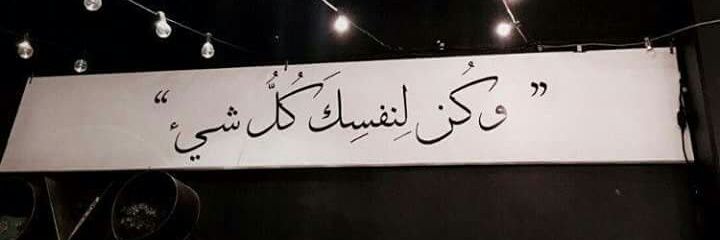 ” وَكُن لِنفسِكَ كُلُّ شيء “